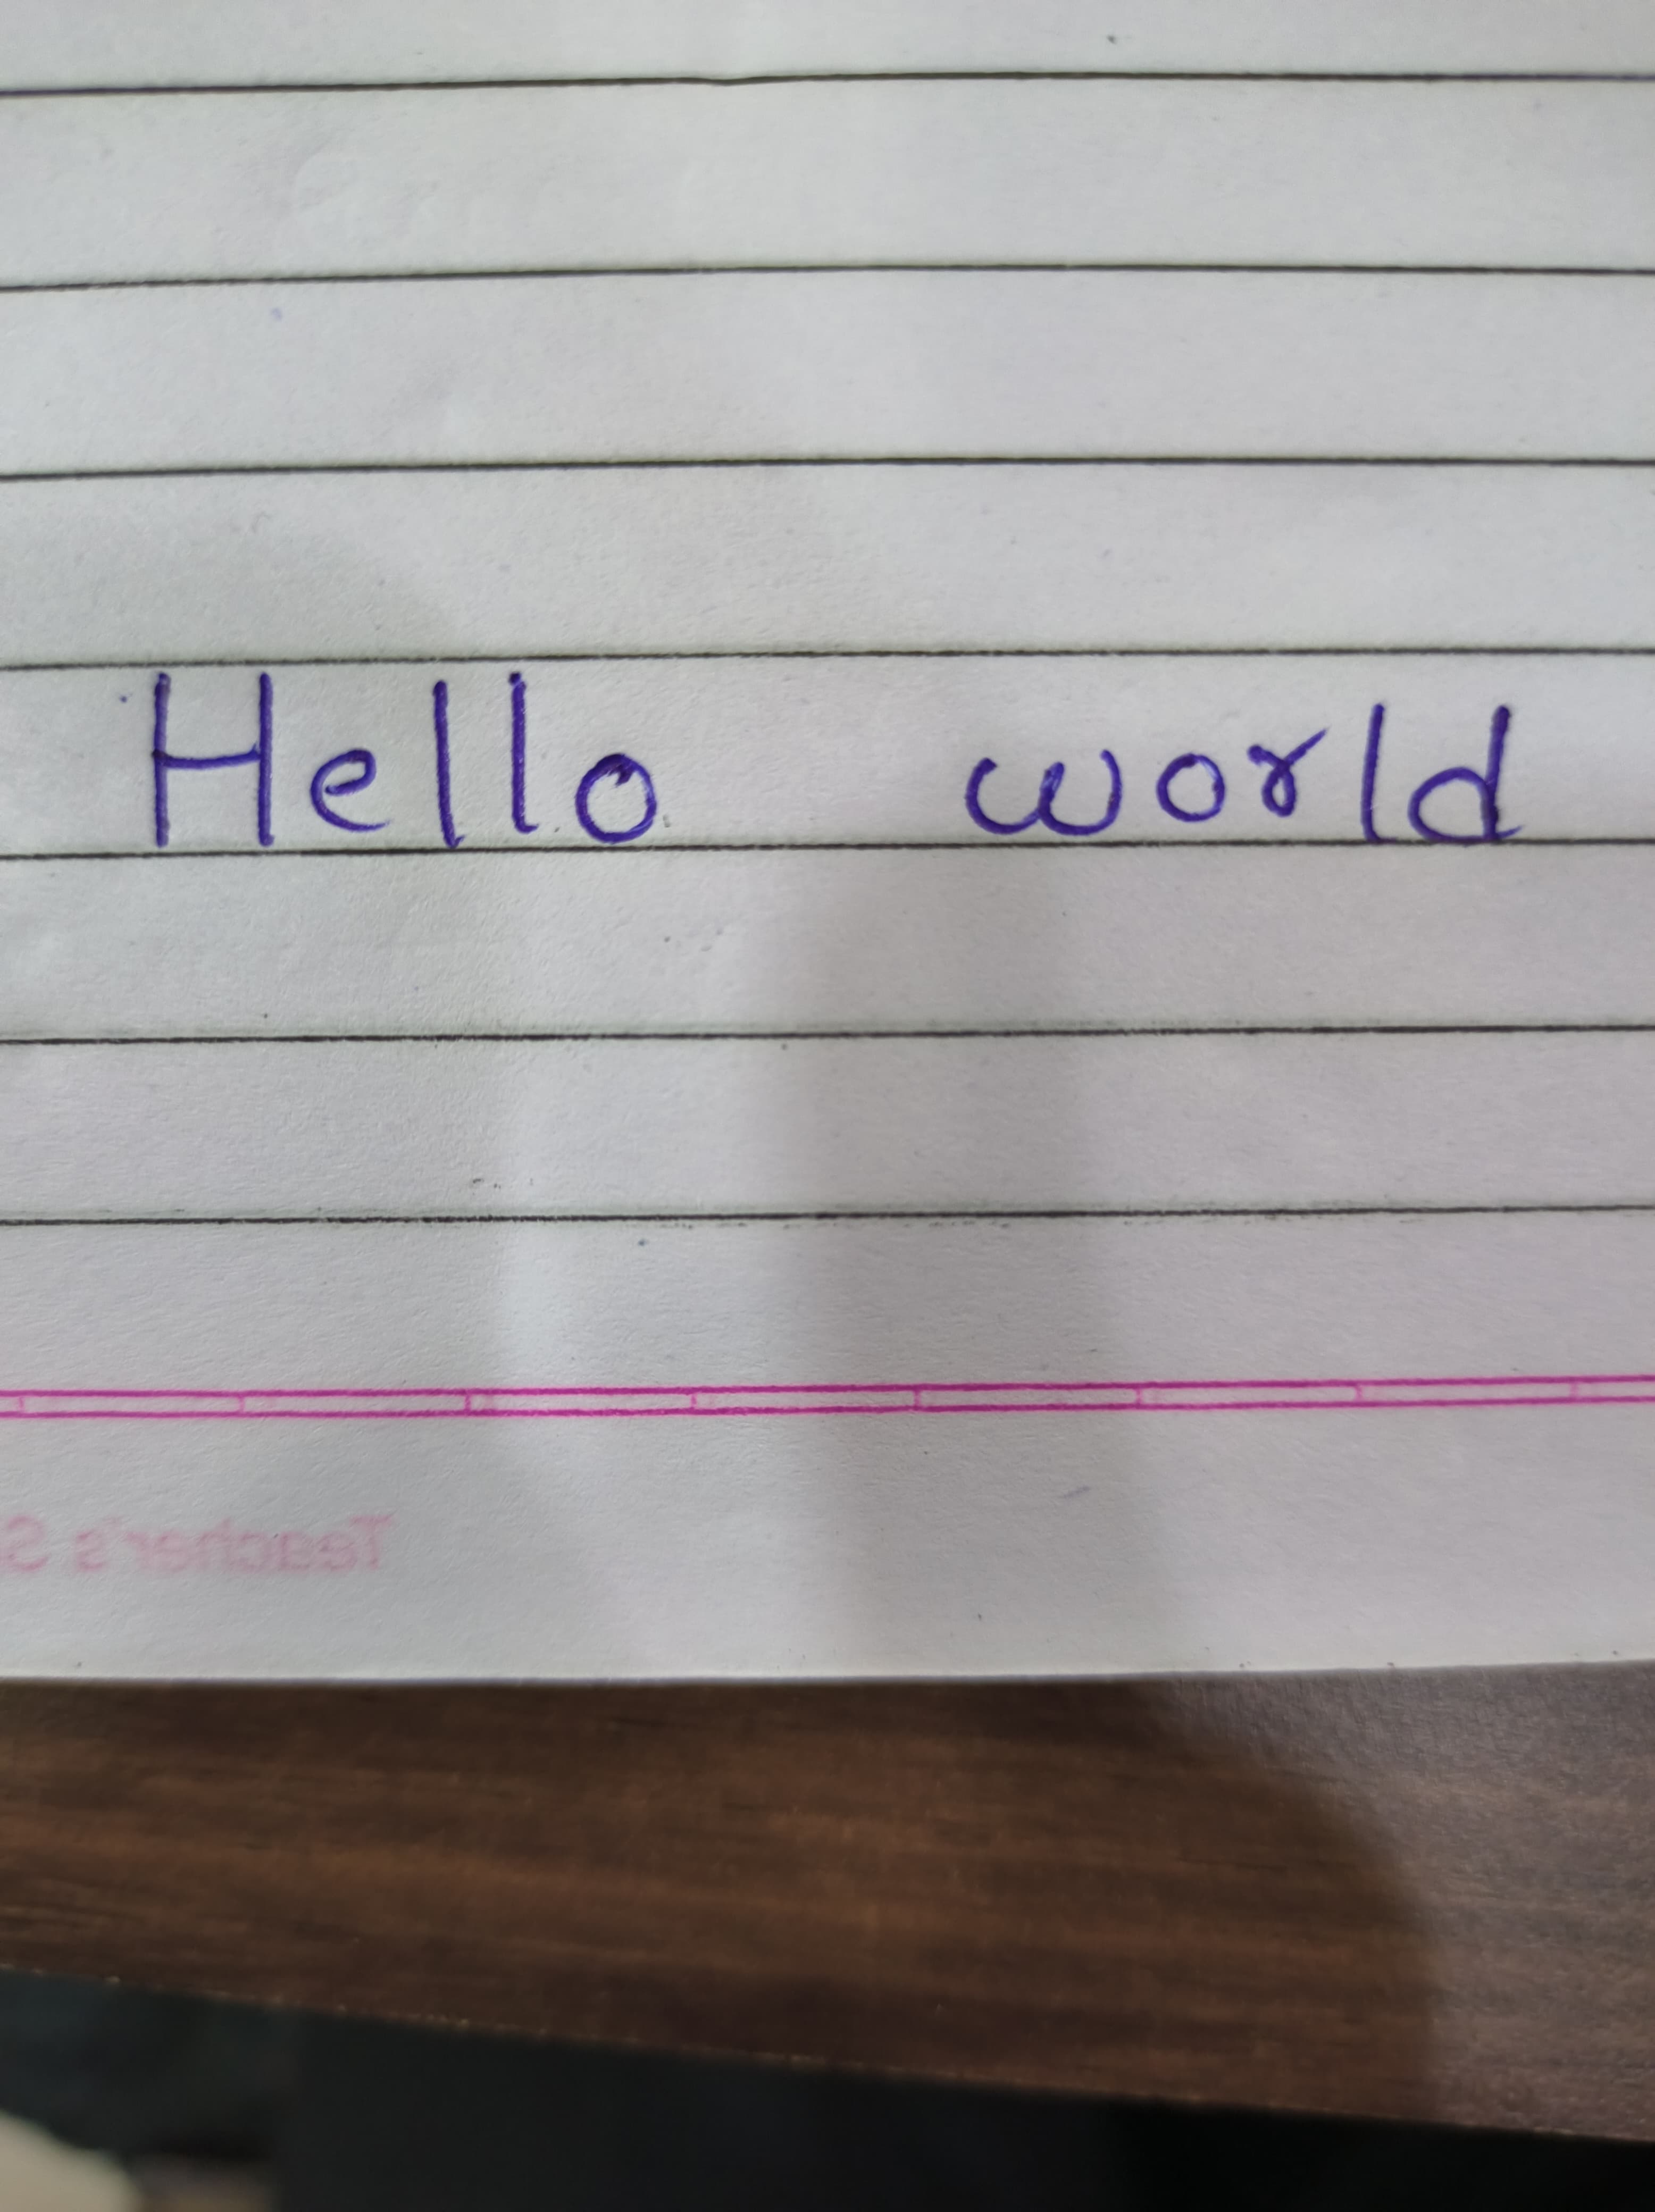 Hello world
Teacher's S